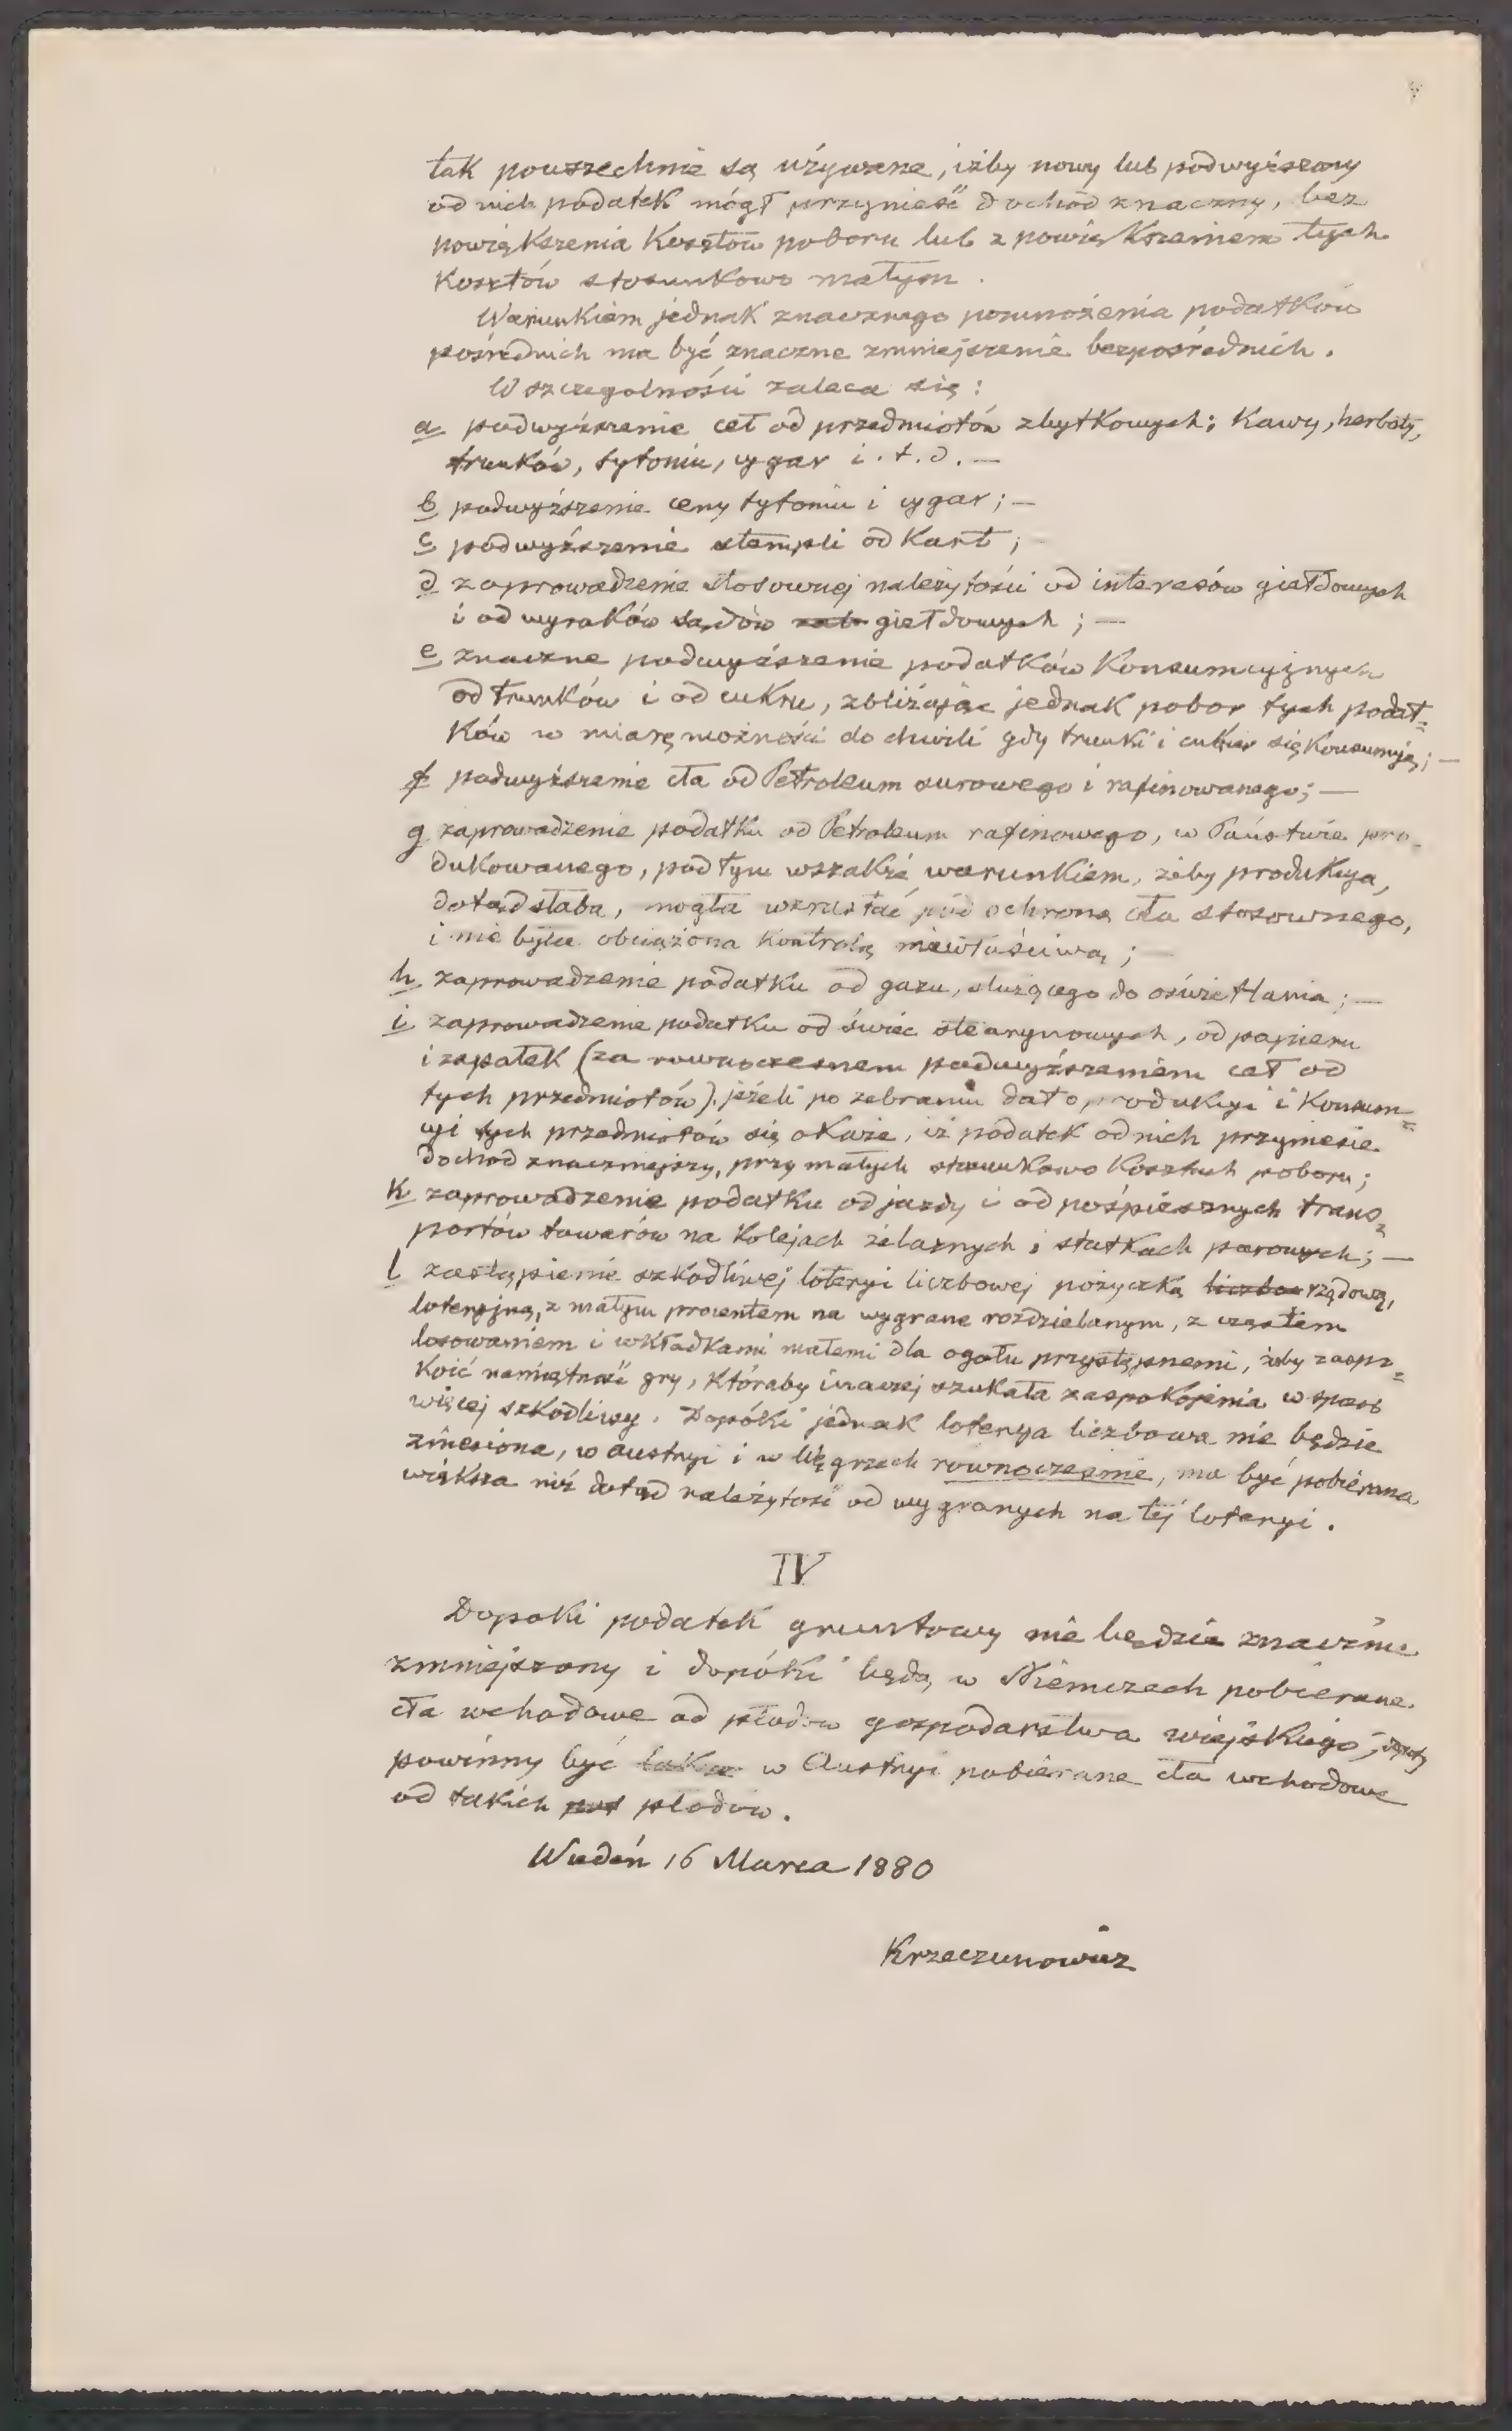 tak powszechnie są używane, iżby nowy lub podwyższony
od nich podatek mógł przynieść dochód znaczny, bez
powiększenia Kosztów poboru lub z powiększeniem tych
Kosztów stosunkowo małym.
Warunkiem jednak znacznego pomnożenia podatków
pośrednich ma być znaczne zmniejszenie bezpośrednich.
W szczególności zaleca się:
a podwyższenie ceł od przedmiotów zbytkowych; Kawy, herbaty,
trunków, tytoniu, cygar i.t.d.—
b podwyższenie ceny tytoniu i cygar;—
c podwyższenie stempli od Kart;
d zaprowadzenie stosownej należytości od interesów giełdowych
i od wyroków sądów giełdowych;—
e znaczne podwyższenie podatków Konsumcyjnych
od trunków i od cukru, zbliżając jednak pobor tych podat=
Ków w miarę możności do chwili gdy trunki i cukier się Konsumują;—
f podwyższenie cła od Petroleum surowego i rafinowanego;—
g zaprowadzenie podatku od Petroleum rafinowego, w Państwie pro-
dukowanego, pod tym wszakże warunkiem, żeby produkcya,
dotąd słaba, mogła wzrastać pod ochroną cła stosownego,
i nie była obciążona Kontrolą niewłaściwą;—
h zaprowadzenie podatku od gazu, służącego do oświetlania;—
i zaprowadzenie podatku od świec stearynowych, od papieru
i zapałek (za rownoczesnem podwyższeniem ceł od
tych przedmiotów). jeżeli po zebraniu dat o produkcyi i Konsum=
cyi tych przedmiotów się okaże, iż podatek od nich przyniesie
dochod znaczniejszy, przy małych stosunkowo Kosztach poboru;
K zaprowadzenie podatku od jazdy i od pośpiesznych trans=
portów towarów na Kolejach żelaznych i statkach parowych;—
l zastąpienie szkodliwej loteryi liczbowej pożyczką rządową,
loteryjną, z małym procentem na wygrane rozdzielanym, z częstem
losowaniem i wkładkami małemi dla ogołu przystępnemi, żeby zaspo=
Koić namiętność gry, Któraby inaczej szukała zaspokojenia w sposób
więcej szkodliwy. Dopóki jednak loterya liczbowa nie będzie
zniesiona, w austryi i w Węgrzech rownocześnie, ma być pobierana
większa niż dotąd należytość od wygranych na tej loteryi.
IV
Dopoki podatek gruntowy nie będzie znacznie
zmniejszony i dopóki będą w Niemczech pobierane
cła wchodowe od płodow gospodarstwa wiejskiego,
powinny być w Austryi pobierane cła wchodowe
od takich płodow.
Wiedeń 16 Marca 1880
Krzeczunowicz